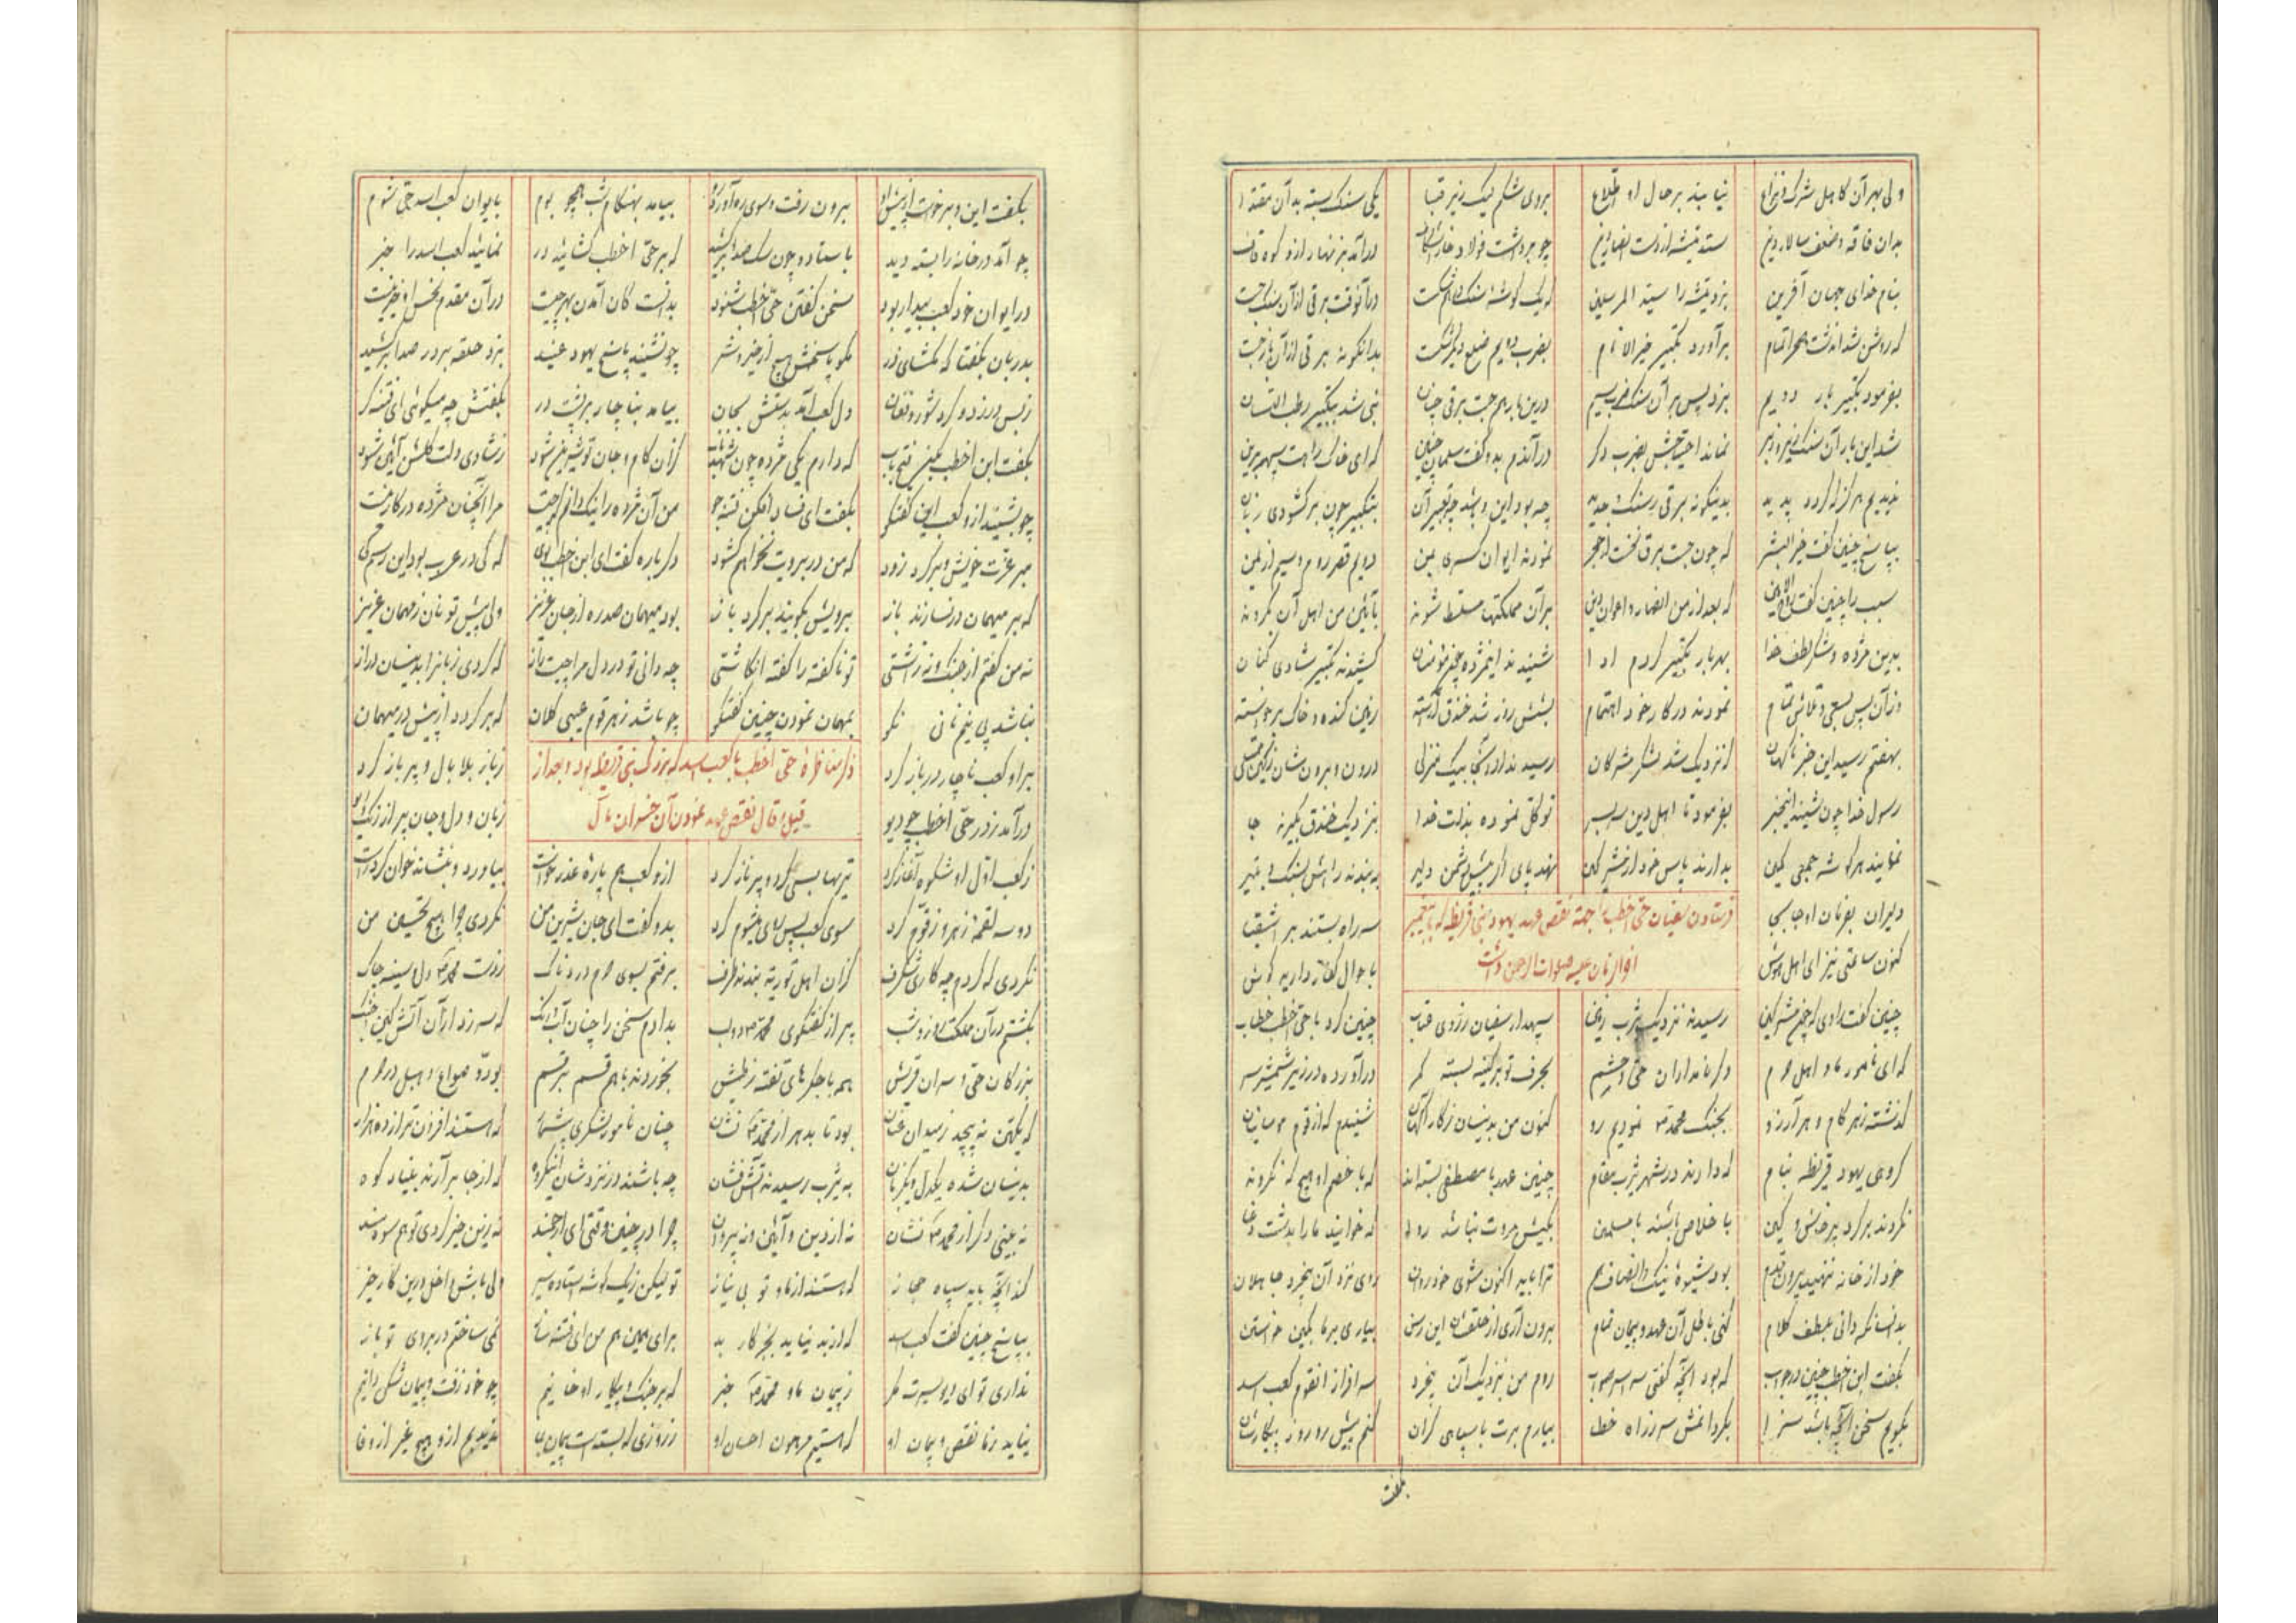 ولی بهر آن کاهل شرک و نزاع نیابند بر حال او اطلاع بروی شکم لیک زیر قبا یکی سنک بسته بد آن مقتدا
بدان فاقه و ضعف سالار دین ستد تیشه از دست انصار دین چو برداشت فولاد خارا شکاف درآمد بزنهار ازو کوه قاف
بنام خدای جهان آفرین بزد تیشه را سید المرسلین که یک کوشه سنک درهم شکست درآنوقت برقی از آن سنک جست
که روشن شد از دشت صحرا تمام برآورد تکبیر خیر الانام بضرب دویم ضلع دیکر شکست بدانکونه برقی از آن باز جست
بفرمود تکبیر بار دویم بزد پس بر آن سنک ضرب سیم درین بار هم جست برقی چنان نبی شد بتکبیر رطب اللسان
شد این بار آن سنک زیر و زبر نماند احتیاجش بضرب دکر درآندم بدو کفت سلمان چنین که ای خاک راهت سپهر برین
ندیدیم هرکز که کردد پدید بدینکونه برقی ز سنک و حدید چه بود این و باشد چه تعبیر آن بتکبیر چون برکشودی زبان
بپاسخ چنین کفت خیر البشر که چون جست برق نخست از حجر نمودند ایوان کسری بمن دویم قصر روم و سیم از یمن
سبب را چنین کفت روح الامین که بعد از من انصار و اعوان دین بر آن مملکتها مسلط شوند بآئین من اهل آن بکروند
بدین مژده و شکر لطف خدا بهر بار تکبیر کردم ادا شنیدند این مژده چون مؤمنان کشیدند تکبیر شادی کنان
وز آن پس بسعی و تلاش تمام نمودند در کار خود اهتمام بشش روز شد خندق آراسته زمین کنده و خاک برخواسته
بهفتم رسید این خبر ناکهان که نزدیک شد لشکر مشرکان رسیدند از آن سو بیک منزلی درون و برون شان ز کین ممتلی
رسول خدا چون شنید این خبر بفرمود تا اهل دین سر بسر توکل نموده بذات خدا بنزدیک خندق بکیرند جا
نمایند هر کوشه جمعی کمین بدارند پاس خود از شر کین نهد پای اکر پیش دشمن دلیر ببندند راهش بسنک و بتیر
دلیران بفرمان او جابجا سر راه بستند بر اشقیا
فرستادن سفیان حی اخطب را جهة نقض عهد یهود بنی قریظه که با پیغمبر
کنون ساعتی نیز ای اهل هوش باحوال کفار دارید کوش
آخر الزمان علیه صلوات الرحمن داشت
چنین کفت راوی که چون مشرکین رسیدند نزدیک یثرب زمین سپهدار سفیان ز روی عتاب چنین کرد با حی اخطب خطاب
که ای نامور ما و اهل حرم دکر نامداران حی و حشم بحرف تو بر کینه بسته کمر درآورده در زیر شمشیر سر
کذشته ز هر کام و هر آرزو بجنک محمد نمودیم رو کنون من بدینسان ز کارآکهان شنیدم که از قوم موسائیان
کروهی یهود قریظه بنام که دارند در شهر یثرب مقام چنین عهد با مصطفی بسته اند که با خصم او هیچ که نکروند
نکردند بر کرد پرخاش و کین باخلاص باشند با مسلمین بکیش مروت نباشد روا که خوانید ما را بدشت وغا
خود از خانه ننهید بیرون قدم بود شیوه نیک و انصاف هم ترا باید اکنون شوی خود روان روی نزد آن بیخرد جاهلان
بد انسانکه دانی بلطف کلام کنی باطل آن عهد و پیمان تمام برون آری از حلقشان این رسن بیاری بر ما بکین خواستن
بکفت ابن اخطب چنین در جواب که بود آنچه کفتی سراسر صواب روم من بنزدیک آن بیخرد سرافراز آنقوم کعب اسد
بکویم سخن آنچه باشد سزا بکردانمش سر ز راه خطا بیارم برت با سپاهی کران کنم پیش رو روز پیکارشان
بکفت
بکفت این و برخواست از پیش او برون رفت و سوی ره آورد رو بیامد بهنکام شب همچو بوم بایوان کعب اسد حی شوم
چو آمد در خانه را بسته دید باستاد و چون سک صدا برکشید که بر حی اخطب کشائید در نمائید کعب اسد را خبر
در ایوان خود کعب بیدار بود سخن کفتن حی اخطب شنود بدانست کان آمدن بهر چیست در آن مقدم نحس او خیر نیست
بدربان بکفتا که مکشای در مکو پاسخش هیچ از خیر و شر چو نشنید پاسخ یهود عنید بزد حلقه بر در صدا برکشید
ز بس در زد و کرد شور و فغان دل کعب آمد بدستش بجان بیامد بناچار بر پشت در بکفتش چه میکوئی ای فتنه کر
بکفت ابن اخطب بکن فتح باب که دارم یکی مژده چون شهد ناب کزان کام و جان تو شیرین شود ز شادی دلت کلشن آئین شود
چو بشنید ازو کعب این کفتکو بکفت ای فساد افکن فتنه جو من آن مژده را نیک دانم که چیست مرا آنچنان مژده در کار نیست
مبر عزت خویش و برکرد زود که من در برویت نخواهم کشود دکرباره کفت ابن اخطب بوی که کی در عرب بود این رسم کی
که بر میهمان در نسازند باز برویش بکویند برکرد باز بود میهمان صدره از جان عزیز ولی پیش تو نان ز مهمان عزیز
نه من کفتم از جنک و نه ز آشتی تو ناکفته را کفته انکاشتی چه دانی تو در دل مرا چیست راز که کردی زبانرا بدینسان دراز
نباشد پی نیم نان نکو بمهمان نمودن چنین کفتکو چو باشد ز هر قوم عیبی کلان که برکردد از پیش در میهمان
ذکر مناظره حی اخطب با کعب اسد که بزرک بنی قریظه بود و بعد از
بر او کعب ناچار در باز کرد ز باز بلا بال و پر باز کرد
قیل و قال نقض عهد نمودن آن خسران مآل
درآمد ز در حی اخطب چو دیو زبان و دل و جان پر از زرق و ریو
ز کعب اول او شکوه آغاز کرد تیزیها بسی کرد و پر ناز کرد ازو کعب هم پاره عذر خواست بیاورد و بنشاند خوان کرد راست
دو سه لقمه زهر و زقوم کرد سوی کعب پس رای میشوم کرد بدو کفت ای جان شیرین من نکردی چرا هیچ تحسین من
نکردی که کردم چه کاری شکرف کزان اهل توریة بندند طرف برفتم بسوی حرم دردناک ز دست محمد دل و سینه چاک
بکشتم در آن مملکت روز و شب پر از کفتکوی محمد دو لب بدادم سخن را چنان آب و رنک که سر زد از آن آتش کین و جنک
بزرکان حی و سران قریش همه با جکرهای تفته ز طیش بخوردند با هم قسم بر قسم بود و سواع و هبل در حرم
که یکتن نه پیچد ز میدان عنان بود تا بدهر از محمد نشان چنان نامور لشکری بیشمار که هستند افزونتر از ده هزار
بدینسان شده یکدل و یکزبان به یثرب رسیدند آتش فشان چه باشند در نزدشان این کروه که از جا برآرند بنیاد کوه
نه بینی دکر از محمد نشان نه از دین و آئین و نه پیروان چرا در چنین وقتی ای ارجمند نه زین خیر کردی تو هم سودمند
کذا آنچه باید سپاه حجاز که هستند از ما و تو بی نیاز تو لیکن ز یک کوشه استاده سیر ولی باش داخل درین کار خیر
بپاسخ چنین کفت کعب اسد که از بد نیاید بجز کار بد برای همین هم من ای فتنه ساز نمی ساختم در بروی تو باز
نداری تو ای دیو سیرت مکر ز پیمان ما و محمد خبر که بر جنک و پیکار او خاینیم چو خود رفت و پیمان شکن دانیم
نیاید ز ما نقض پیمان او که هستیم مرهون احسان او ز روزی که بسته است پیمان بما ندیدیم ازو هیچ غیر از وفا